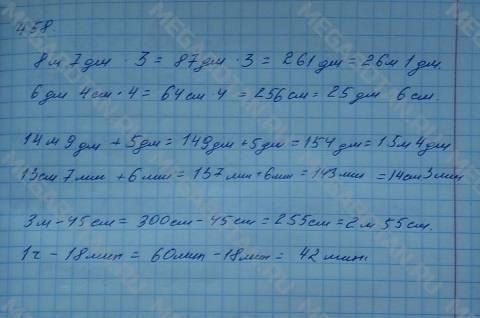 458.
8м 7дм · 3 = 87дм · 3 = 261 дм = 26м 1дм.
6дм 4см · 4 = 64см · 4 = 256см = 25дм 6см.
14м 9дм + 5дм = 149дм + 5дм = 154дм = 15м 4дм
13см 7мм + 6мм = 137мм + 6мм = 143мм = 14см 3мм
3м - 45см = 300см - 45см = 255см = 2м 55см.
1ч - 18мин = 60мин - 18мин = 42мин